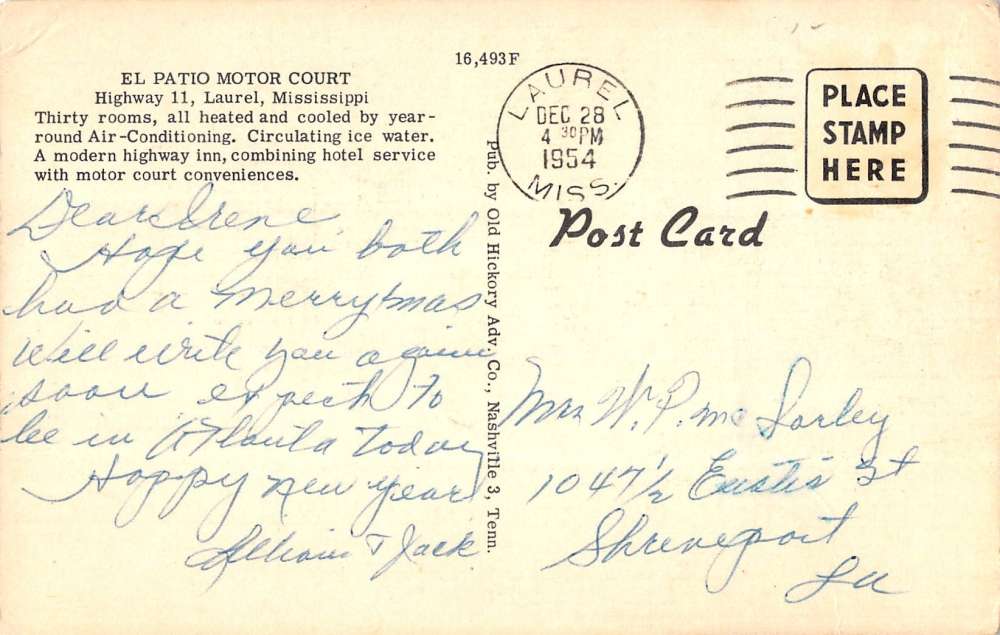 16,493F
EL PATIO MOTOR COURT
Highway 11, Laurel, Mississippi
Thirty rooms, all heated and cooled by year-
round Air-Conditioning. Circulating ice water.
A modern highway inn, combining hotel service
with motor court conveniences.
Dear Irene
Hope you both
had a merry Xmas
will write you again
soon expect to
be in Atlanta today
Happy new year
& Jack
Pub. by Old Hickory Adv. Co., Nashville 3, Tenn.
LAUREL
DEC 28
4 30 PM
1954
MISS.
PLACE
STAMP
HERE
Post Card
Mrs W. P. Mc Sorley
1047 1/2 Eustis St
Shreveport
La